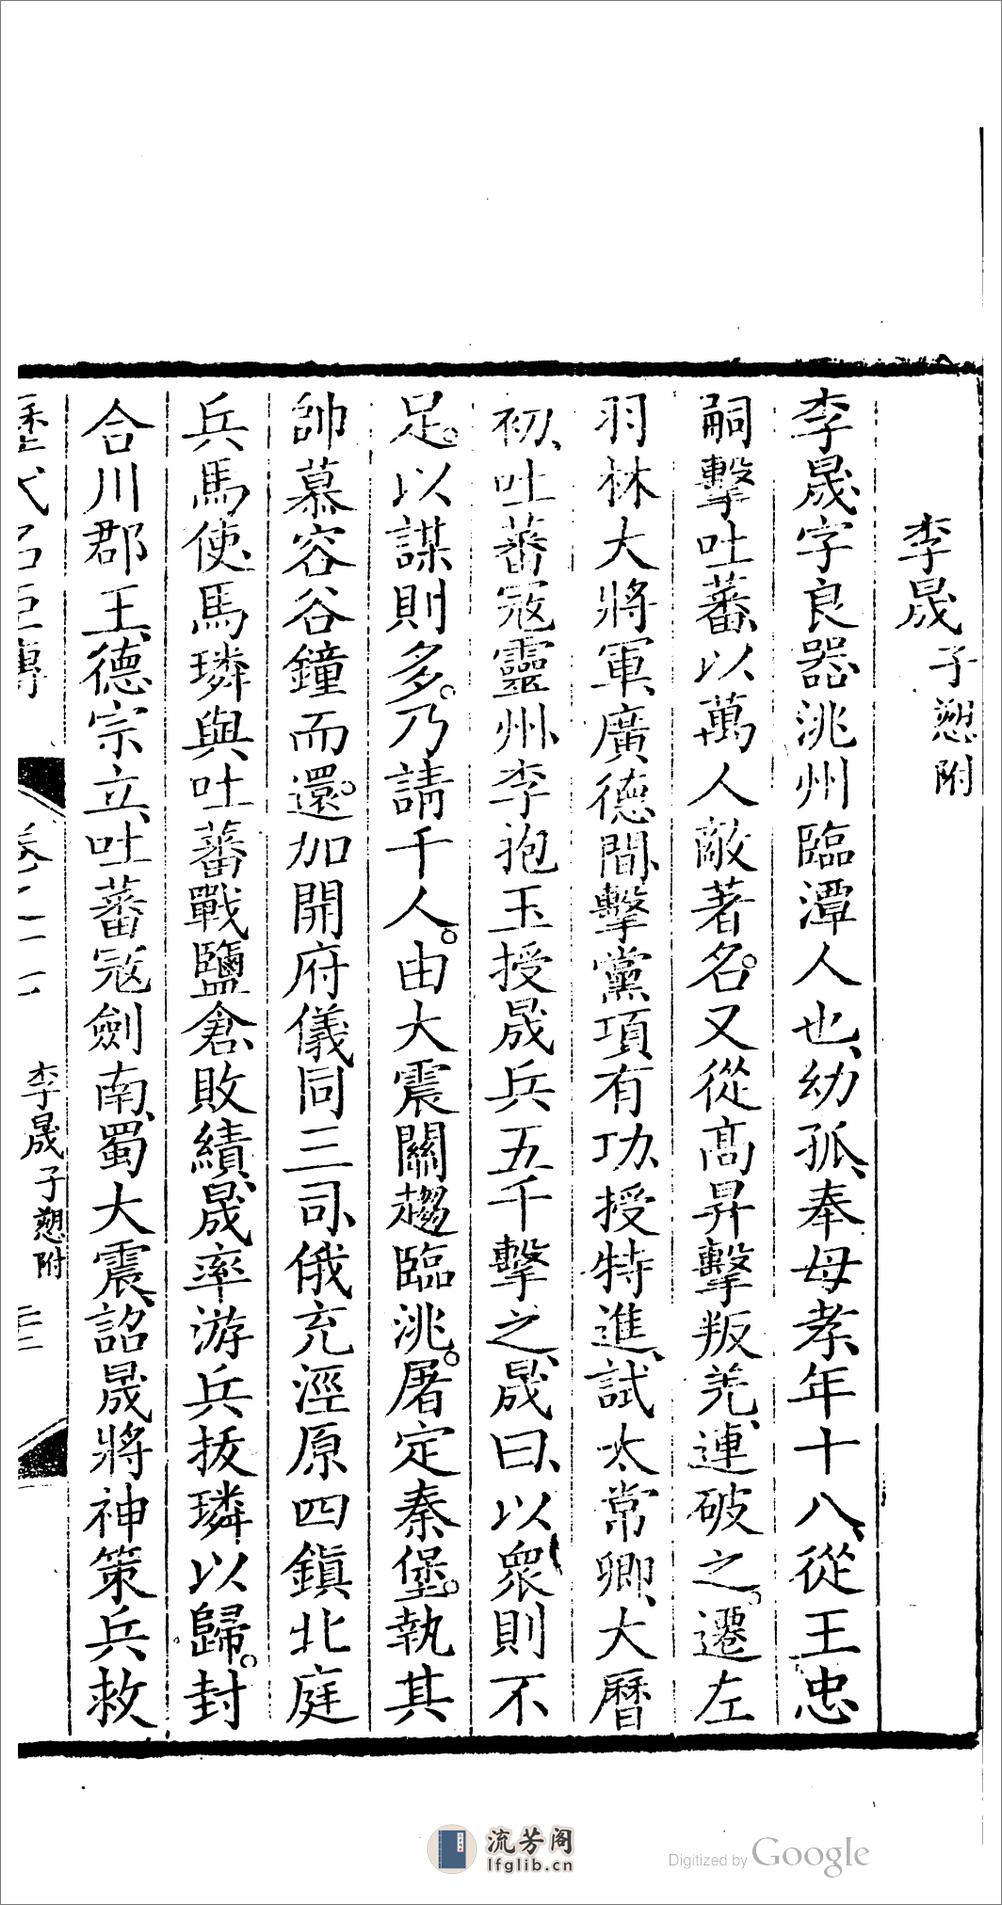 李晟子愬附
李晟、字良器、洮州臨潭人也、幼孤、奉母孝、年十八、從王忠
嗣擊吐蕃、以萬人敵著名。又從高昇擊叛羌、連破之。遷左
羽林大將軍、廣德間、擊黨項、有功、授特進、試太常卿、大曆
初、吐蕃寇靈州、李抱玉授晟兵五千擊之、晟曰、以衆則不
足。以謀則多。乃請千人。由大震關趨臨洮。屠定秦堡。執其
帥慕容谷鐘而還。加開府儀同三司、俄充涇原四鎮北庭
兵馬使、馬璘與吐蕃戰鹽倉、敗績、晟率游兵拔璘以歸。封
合川郡王、德宗立、吐蕃寇劍南、蜀大震、詔晟將神策兵救
歷代名臣傳
李晟子愬附
流芳阁
lfglib.cn
Digitized by Google